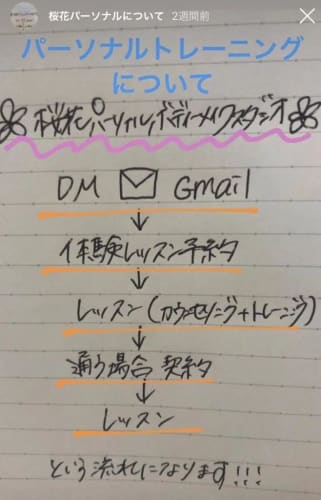 桜花パーソナルについて 2週間前
パーソナルトレーニング
について
桜花パーソナルボディーメイクスタジオ
DM Gmail
体験レッスン予約
レッスン(カウンセリング+トレーニング)
通う場合 契約
レッスン
という流れになります!!!